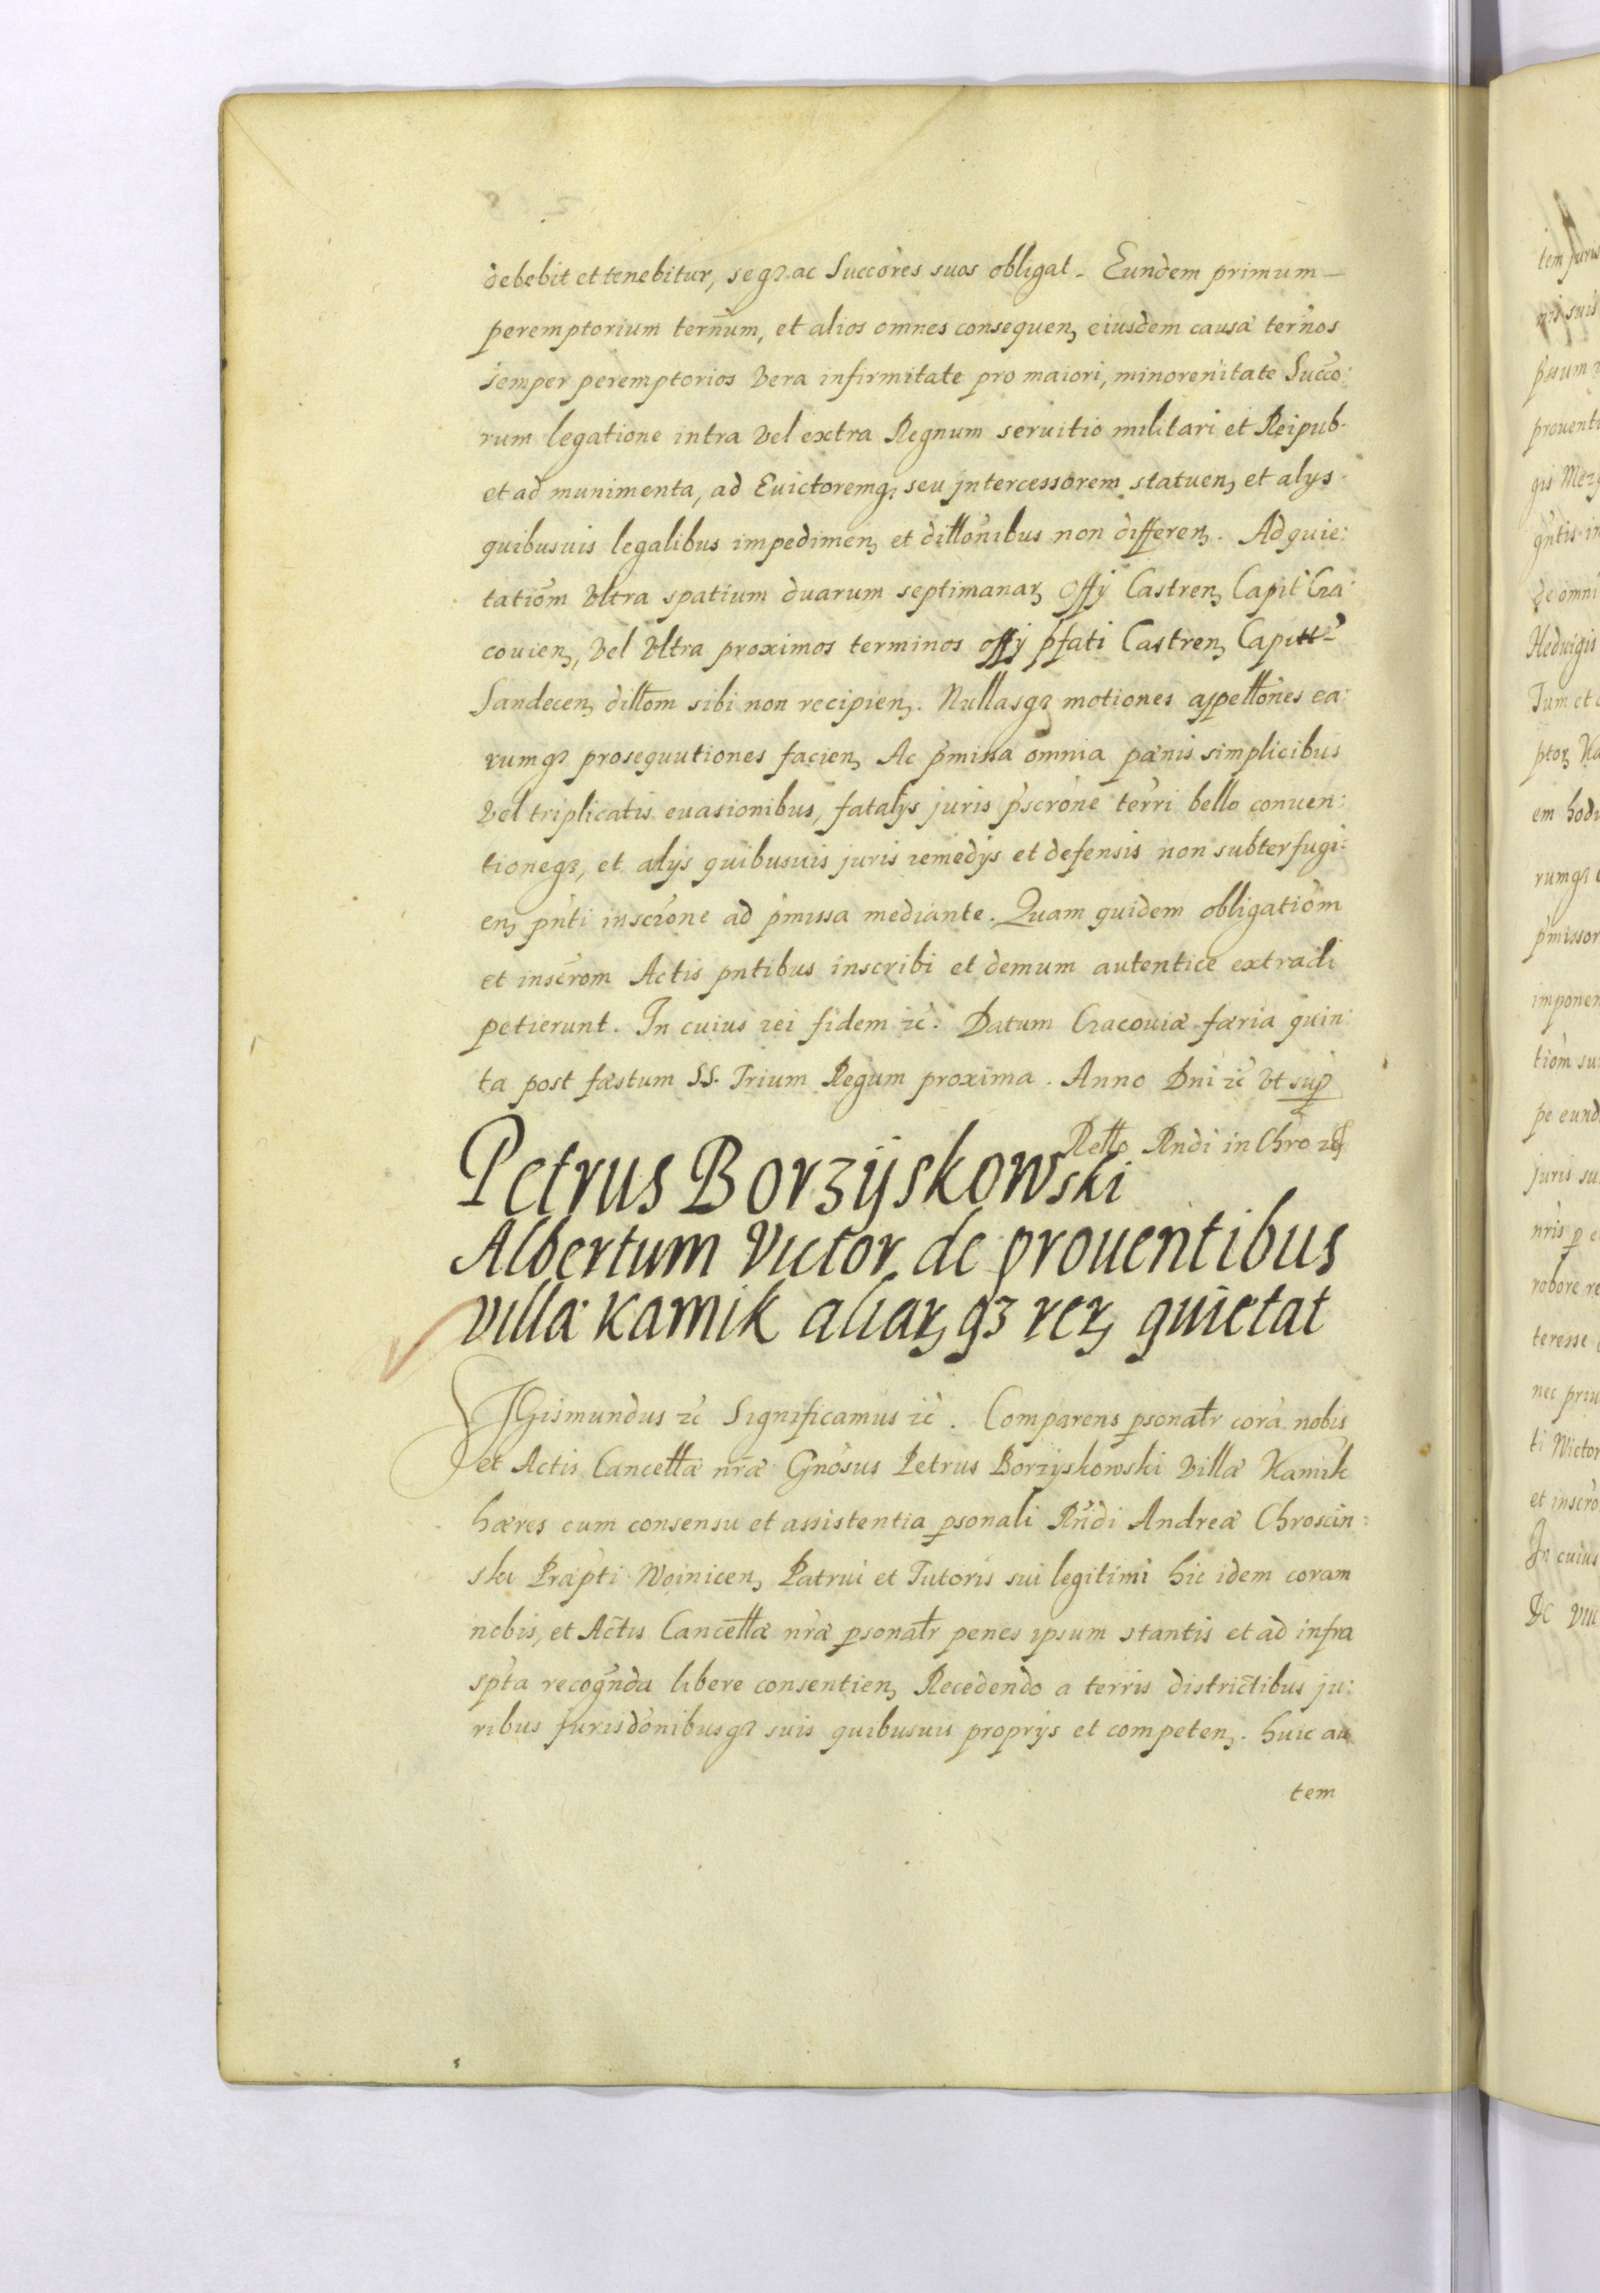 debebit et tenebitur, seqȝ ac Succōres suos obligat. Eundem primum
peremptorium term̄um, et alios omnes consequenȝ eiusdem causæ term̄os
semper peremptorios vera infirmitate pro maiori, minorenitate Succo:
rum legatione intra vel extra Regnum seruitio militari et Reipub.
et ad munimenta, ad Euictoremqȝ seu jntercessorem statuenȝ et alys
quibusuis legalibus impedimenȝ et dillōnibus non differenȝ. Ad quie:
tatiōm vltra spatium duarum septimanarȝ Offy Castrenȝ Capīt Cra
couienȝ, vel vltra proximos terminos offÿ p̄fati Castrenȝ Capittˢ
Sandecenȝ dillōm sibi non recipienȝ. Nullasqȝ motiones appellōnes ea:
rumqȝ prosequutiones facienȝ Ac p̄missa omnia pænis simplicibus
vel triplicatis euasionibus, fatalÿs juris p̄scrōne terr̄i bello conuen:
tioneqȝ, et alÿs quibusuis juris remedÿs et defensis non subterfugi:
enȝ pn̄ti inscrōne ad p̄missa mediante. Quam quidem obligatiōm
et inscrōm Actis pntibus inscribi et demum autentice extradi
petierunt. In cuius rei fidem ꝛc̄. Datum Cracouiæ færia quin
ta post fæstum SS. Trium Regum proxima. Anno Dn̄i ꝛc̄ vt sup̄
Rello Rndi in Chro ꝛc̄
Petrus Borzÿskowski
Albertum Victor de prouentibus
villæ Kamik aliarȝ qȝ rerȝ quietat
SJGismundus ꝛc̄ Significamus ꝛc̄. Comparens p̱sonalr̄ corā nobis
et Actis Cancellæ nr̄æ Gnōsus Petrus Borzyskowski villæ Kamik
hæres cum consensu et assistentia p̱sonali Rn̄di Andreæ Chroscin:
ski Præpti Woinicenȝ Patrui et Tutoris sui legitimi hic idem coram
nobis, et Actis Cancellæ nr̄æ p̱sonalr̄ penes ipsum stantis et ad infra
sp̄ta recogn̄da libere consentienȝ Recedendo a terris districtibus ju:
ribus jurisdōnibusqȝ suis quibusuis proprÿs et competenȝ. huic au
tem